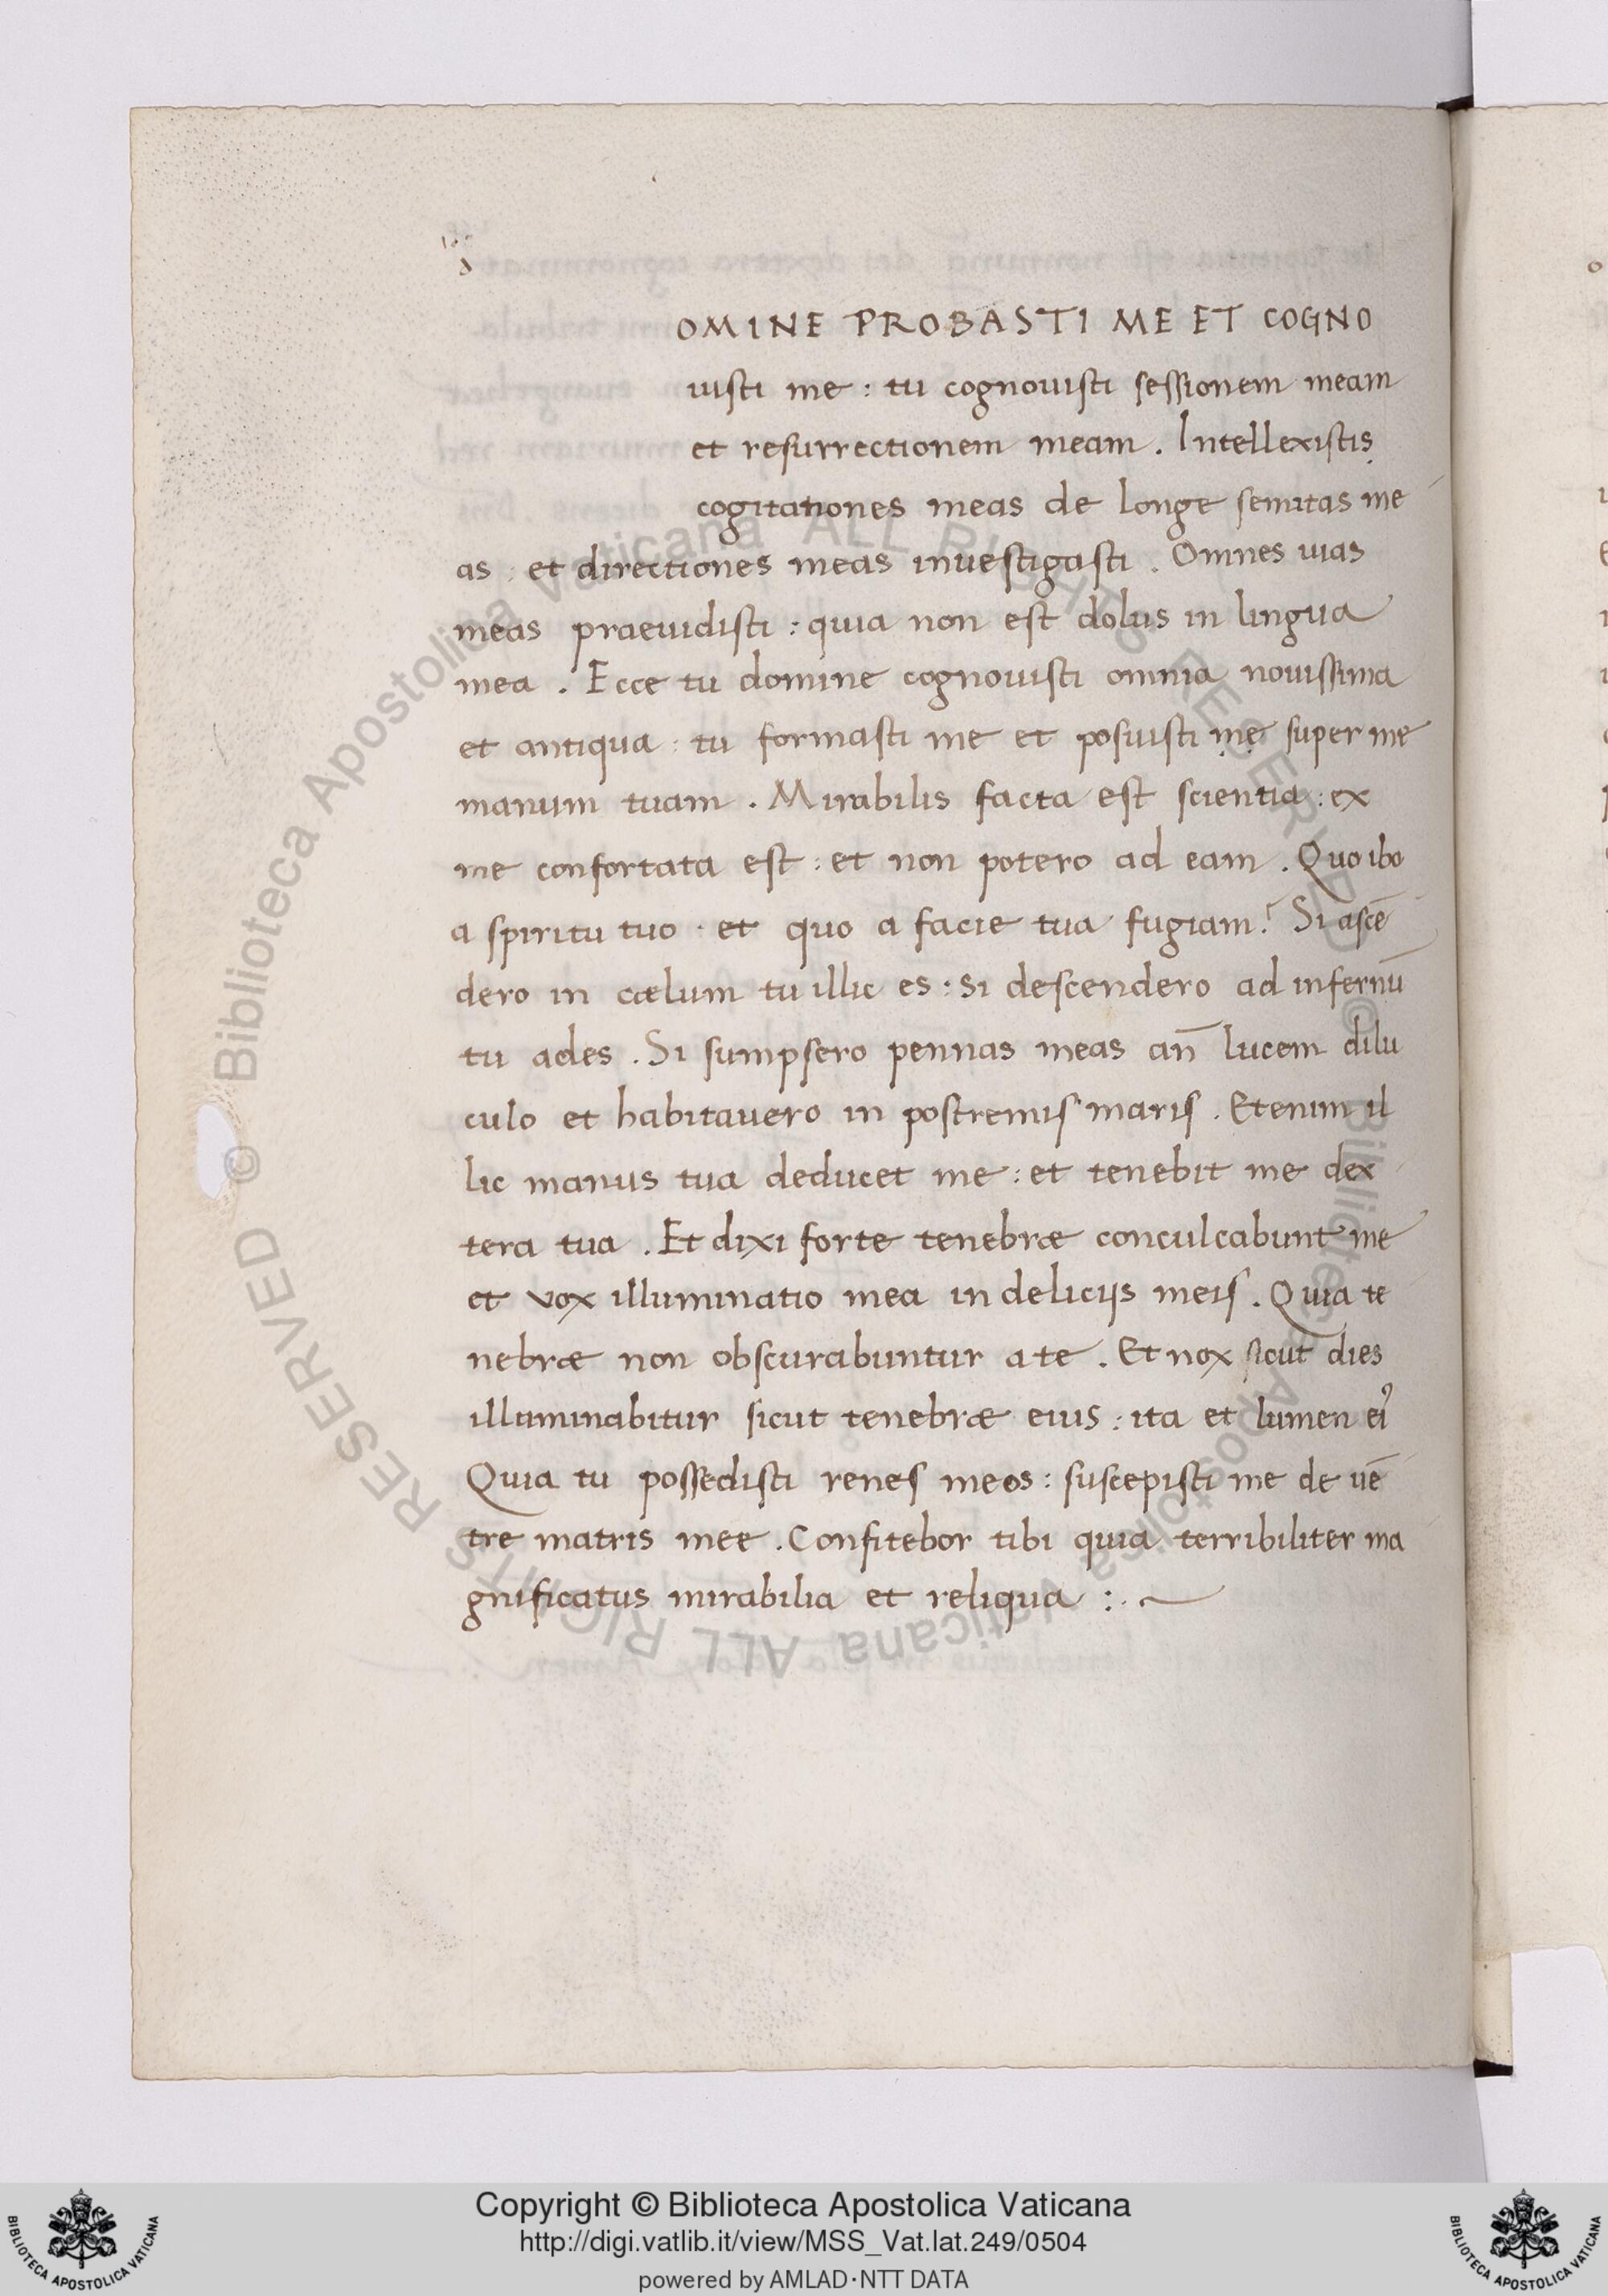 OMINE PROBASTI ME ET COGNO
uisti me : tu cognouisti sessionem meam
et resurrectionem meam . Intellexistis
cogitationes meas de longe semitas me
as : et directiones meas inuestigasti . Omnes uias
meas praeuidisti : quia non est dolus in lingua
mea . Ecce tu domine cognouisti omnia nouissima
et antiqua : tu formasti me et posuisti me super me
manum tuam . Mirabilis facta est scientia : ex
me confortata est : et non potero ad eam . Quo ibo
a spiritu tuo . et quo a facie tua fugiam ? Si ascē
dero in cælum tu illic es : si descendero ad infernū
tu ades . Si sumpsero pennas meas an̄ lucem dilu
culo et habitauero in postremis maris . Etenim il
lic manus tua deducet me : et tenebit me dex
tera tua . Et dixi forte tenebræ conculcabunt me
et vox illuminatio mea in delicijs meis . Quia te
nebræ non obscurabuntur a te . Et nox sicut dies
illuminabitur sicut tenebræ eius : ita et lumen eiꝰ
Quia tu possedisti renes meos : suscepisti me de uē
tre matris mee . Confitebor tibi quia terribiliter ma
gnificatus mirabilia et reliqua : .
© Biblioteca Apostolica Vaticana ALL RIGHTS RESERVED © Biblioteca Apostolica Vaticana ALL RIGHTS RESERVED
Copyright © Biblioteca Apostolica Vaticana
http://digi.vatlib.it/view/MSS_Vat.lat.249/0504
powered by AMLAD·NTT DATA
BIBLIOTECA APOSTOLICA VATICANA
BIBLIOTECA APOSTOLICA VATICANA